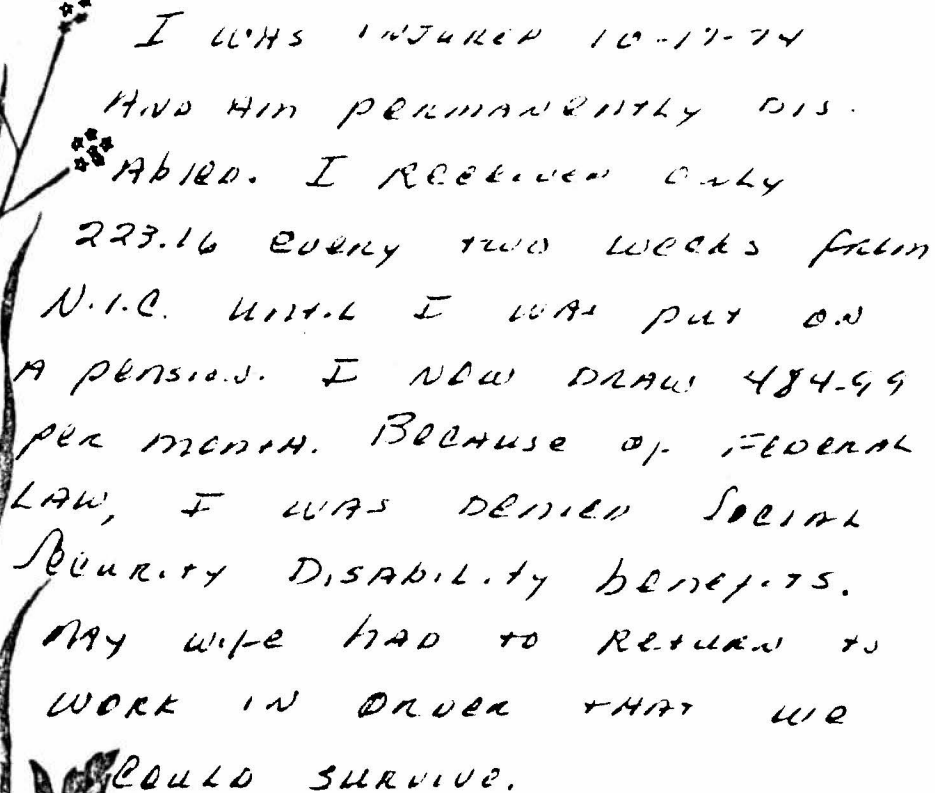 I WAS INJURED 10-17-74
AND AM PERMANENTLY DIS-
ABLED. I RECEIVED ONLY
223.16 EVERY TWO WEEKS FROM
N.I.C. UNTIL I WAS PUT ON
A PENSION. I NOW DRAW 484.99
PER MONTH. BECAUSE OF FEDERAL
LAW, I WAS DENIED SOCIAL
SECURITY DISABILITY BENEFITS.
MAY WIFE HAD TO RETURN TO
WORK IN ORDER THAT WE
COULD SURVIVE.